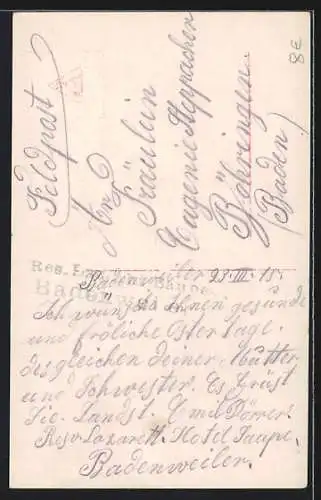 Feldpost
An
Fräulein
Eugenie Steppacher
Böhringen
(Baden)
8E
Res. Laz.
Badenweiler
Badenweiler 23.III.15.
Ich wünsche Ihnen gesunde
und fröliche Oster Tage.
desgleichen deiner Mutter
und Schwester. Es Grüst
Sie. Landst. Emil Dörrer.
Resv Lazarett. Hotel Saupe.
Badenweiler.